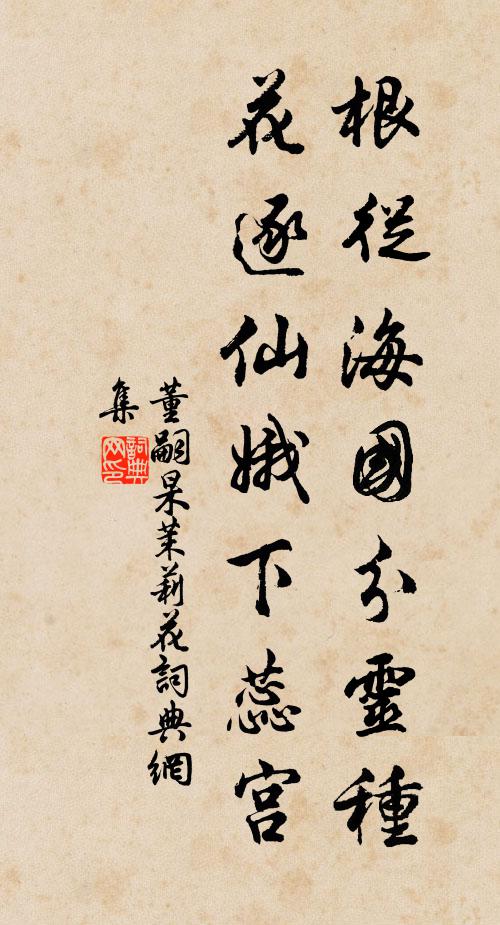 根從海國分靈種
花逐仙娥下蕊宮
董嗣杲茉莉花詞典網
集
詞典
网印